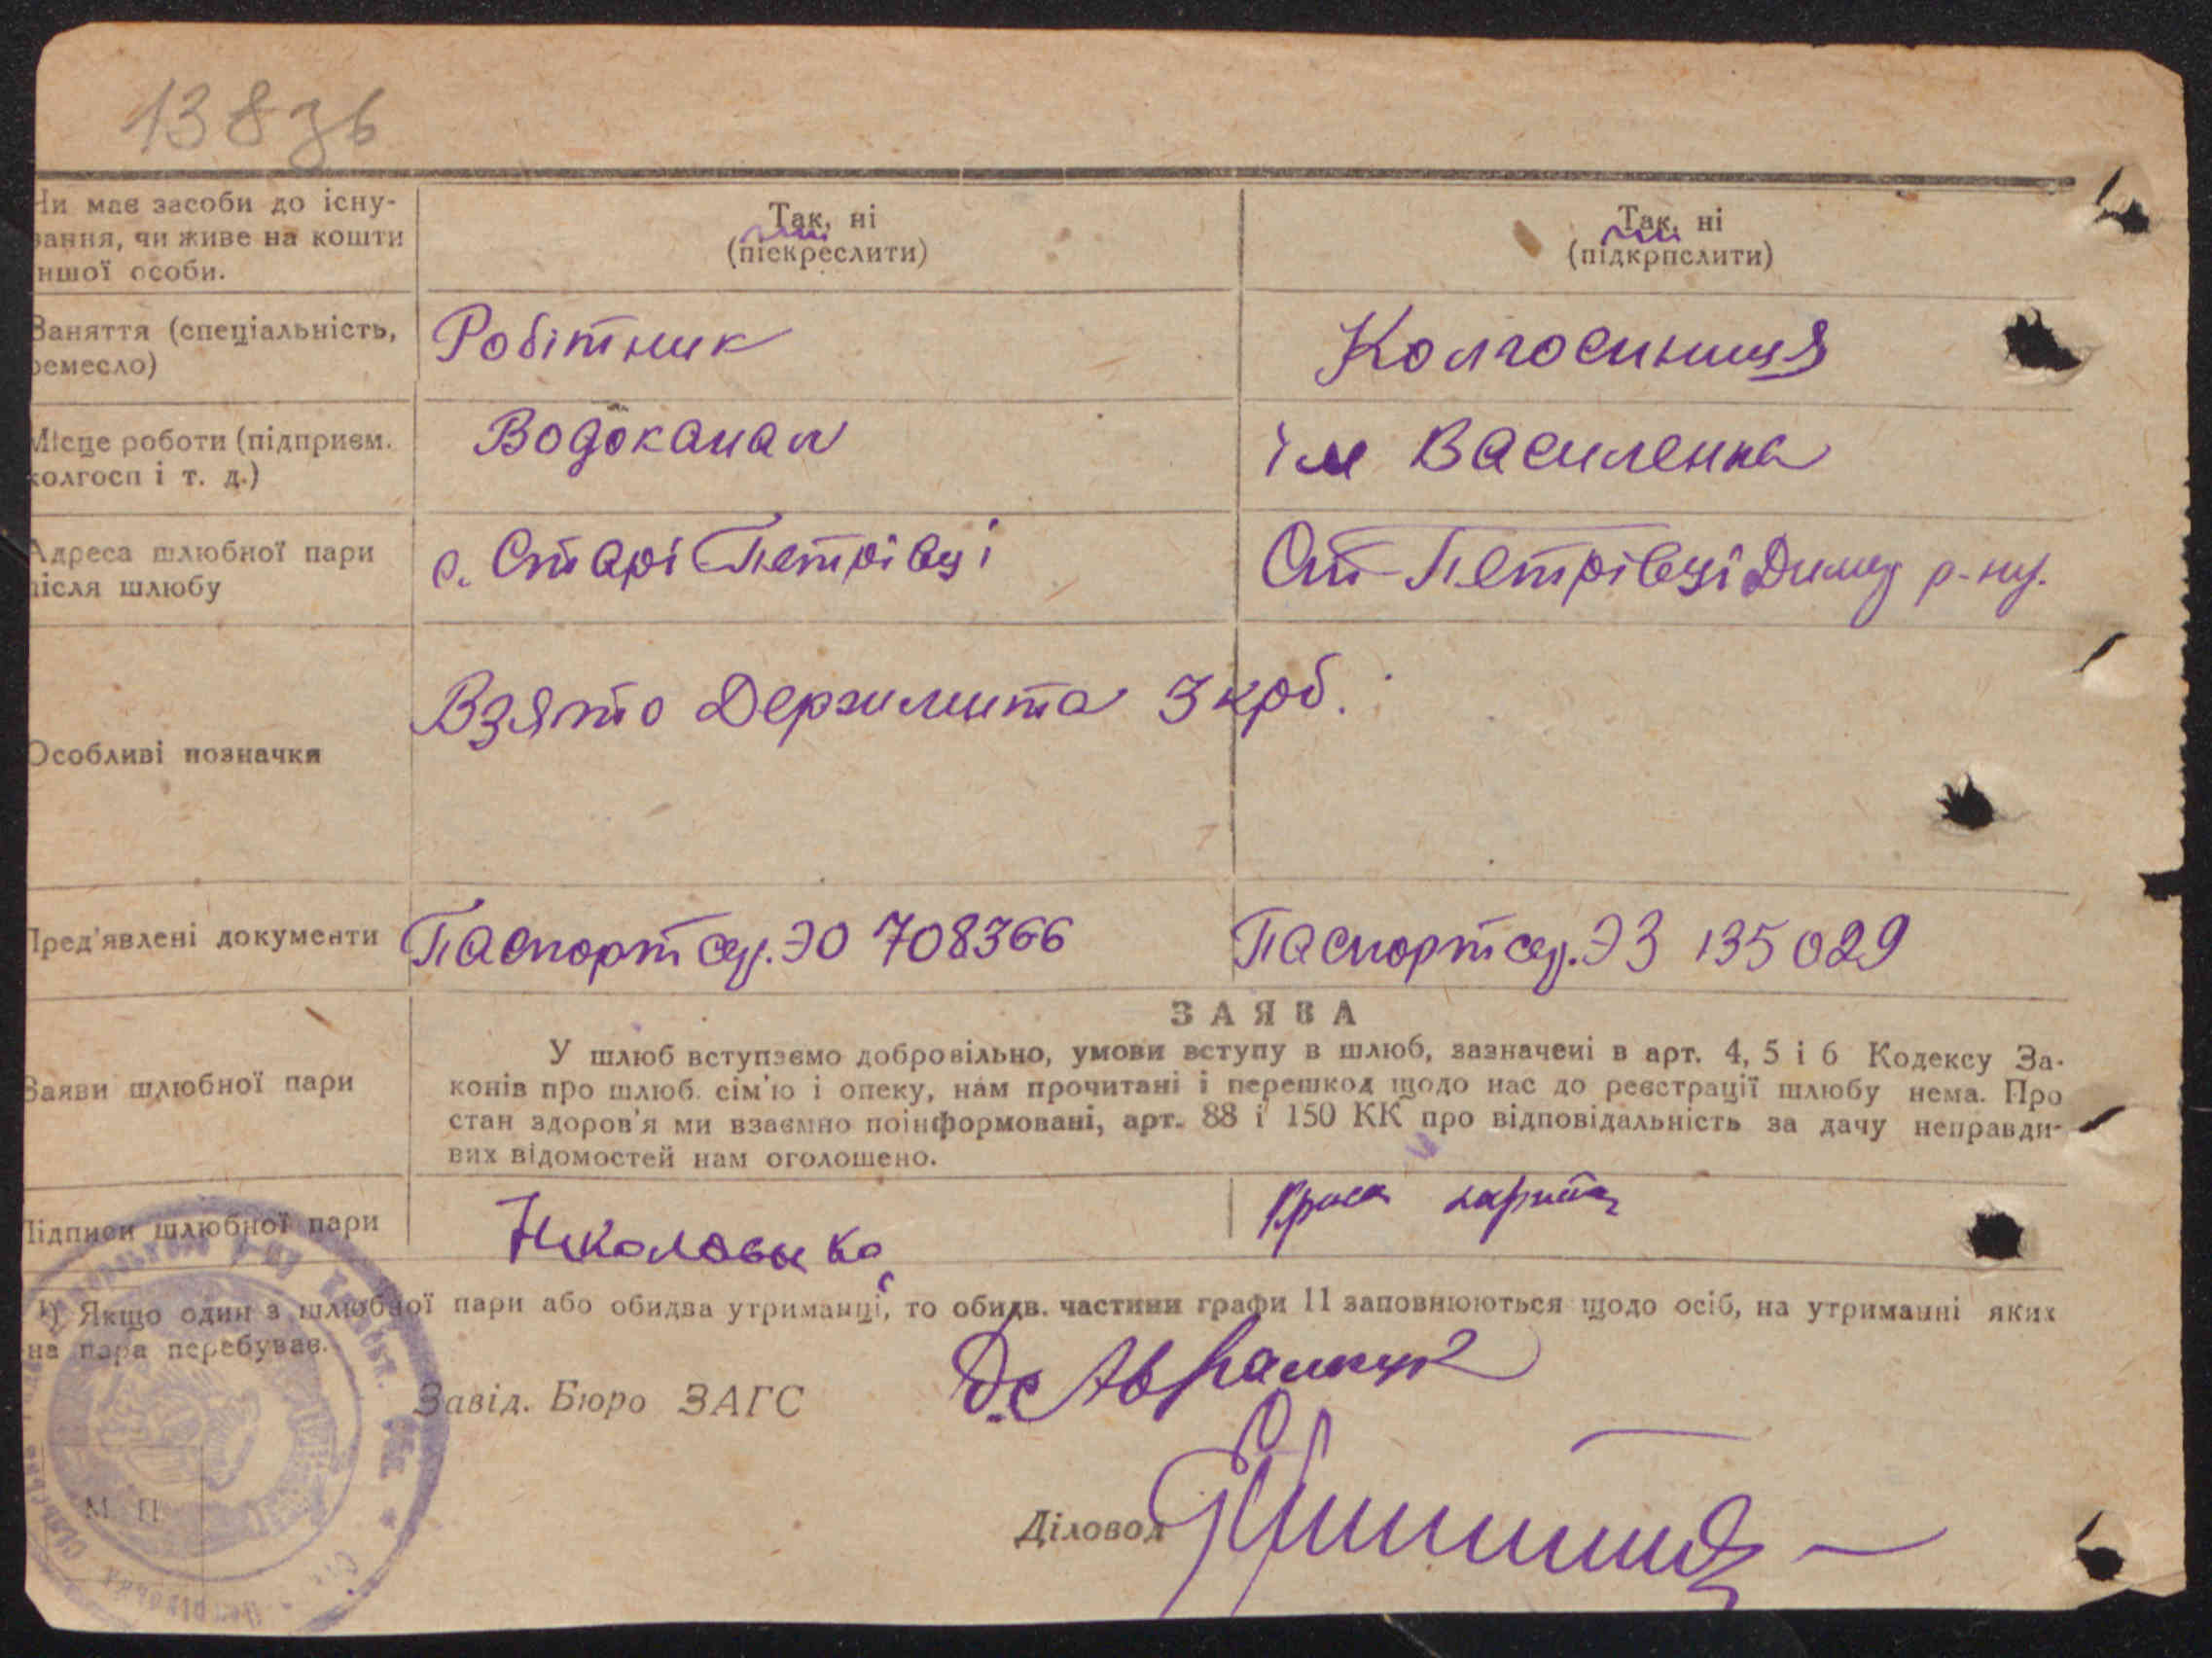 138 зв
Чи має засоби до існу-
вання, чи живе на кошти
иншої особи.
Так, ні
(піекреслити)
Так, ні
(підкрпслити)
Заняття (спеціальність,
ремесло)
Робітник
Колгоспниця
Місце роботи (підприєм.
колгосп і т. д.)
Водоканал
ім Василенка
Адреса шлюбної пари
після шлюбу
с. Старі Петрівці
Ст-Петрівці Димер р-ну.
Особливі позначки
Взято Держмита 3 крб.
Пред'явлені документи
Паспорт сер. ЭО 708366
Паспорт сер. ЭЗ 135029
Заяви шлюбної пари
ЗАЯВА
У шлюб вступаємо добровільно, умови вступу в шлюб, зазначені в арт. 4, 5 і 6 Кодексу За-
конів про шлюб. сім'ю і опеку, нам прочитані і перешкод щодо нас до реєстрації шлюбу нема. Про
стан здоров'я ми взаємно поінформовані, арт. 88 і 150 КК про відповідальність за дачу неправди-
вих відомостей нам оголошено.
Підписи шлюбної пари
¹) Якщо один з шлюбної пари або обидва утриманці, то обидв. частини графи 11 заповнюються щодо осіб, на утриманні яких
на пара перебуває.
Завід. Бюро ЗАГС
М. П.
Діловод